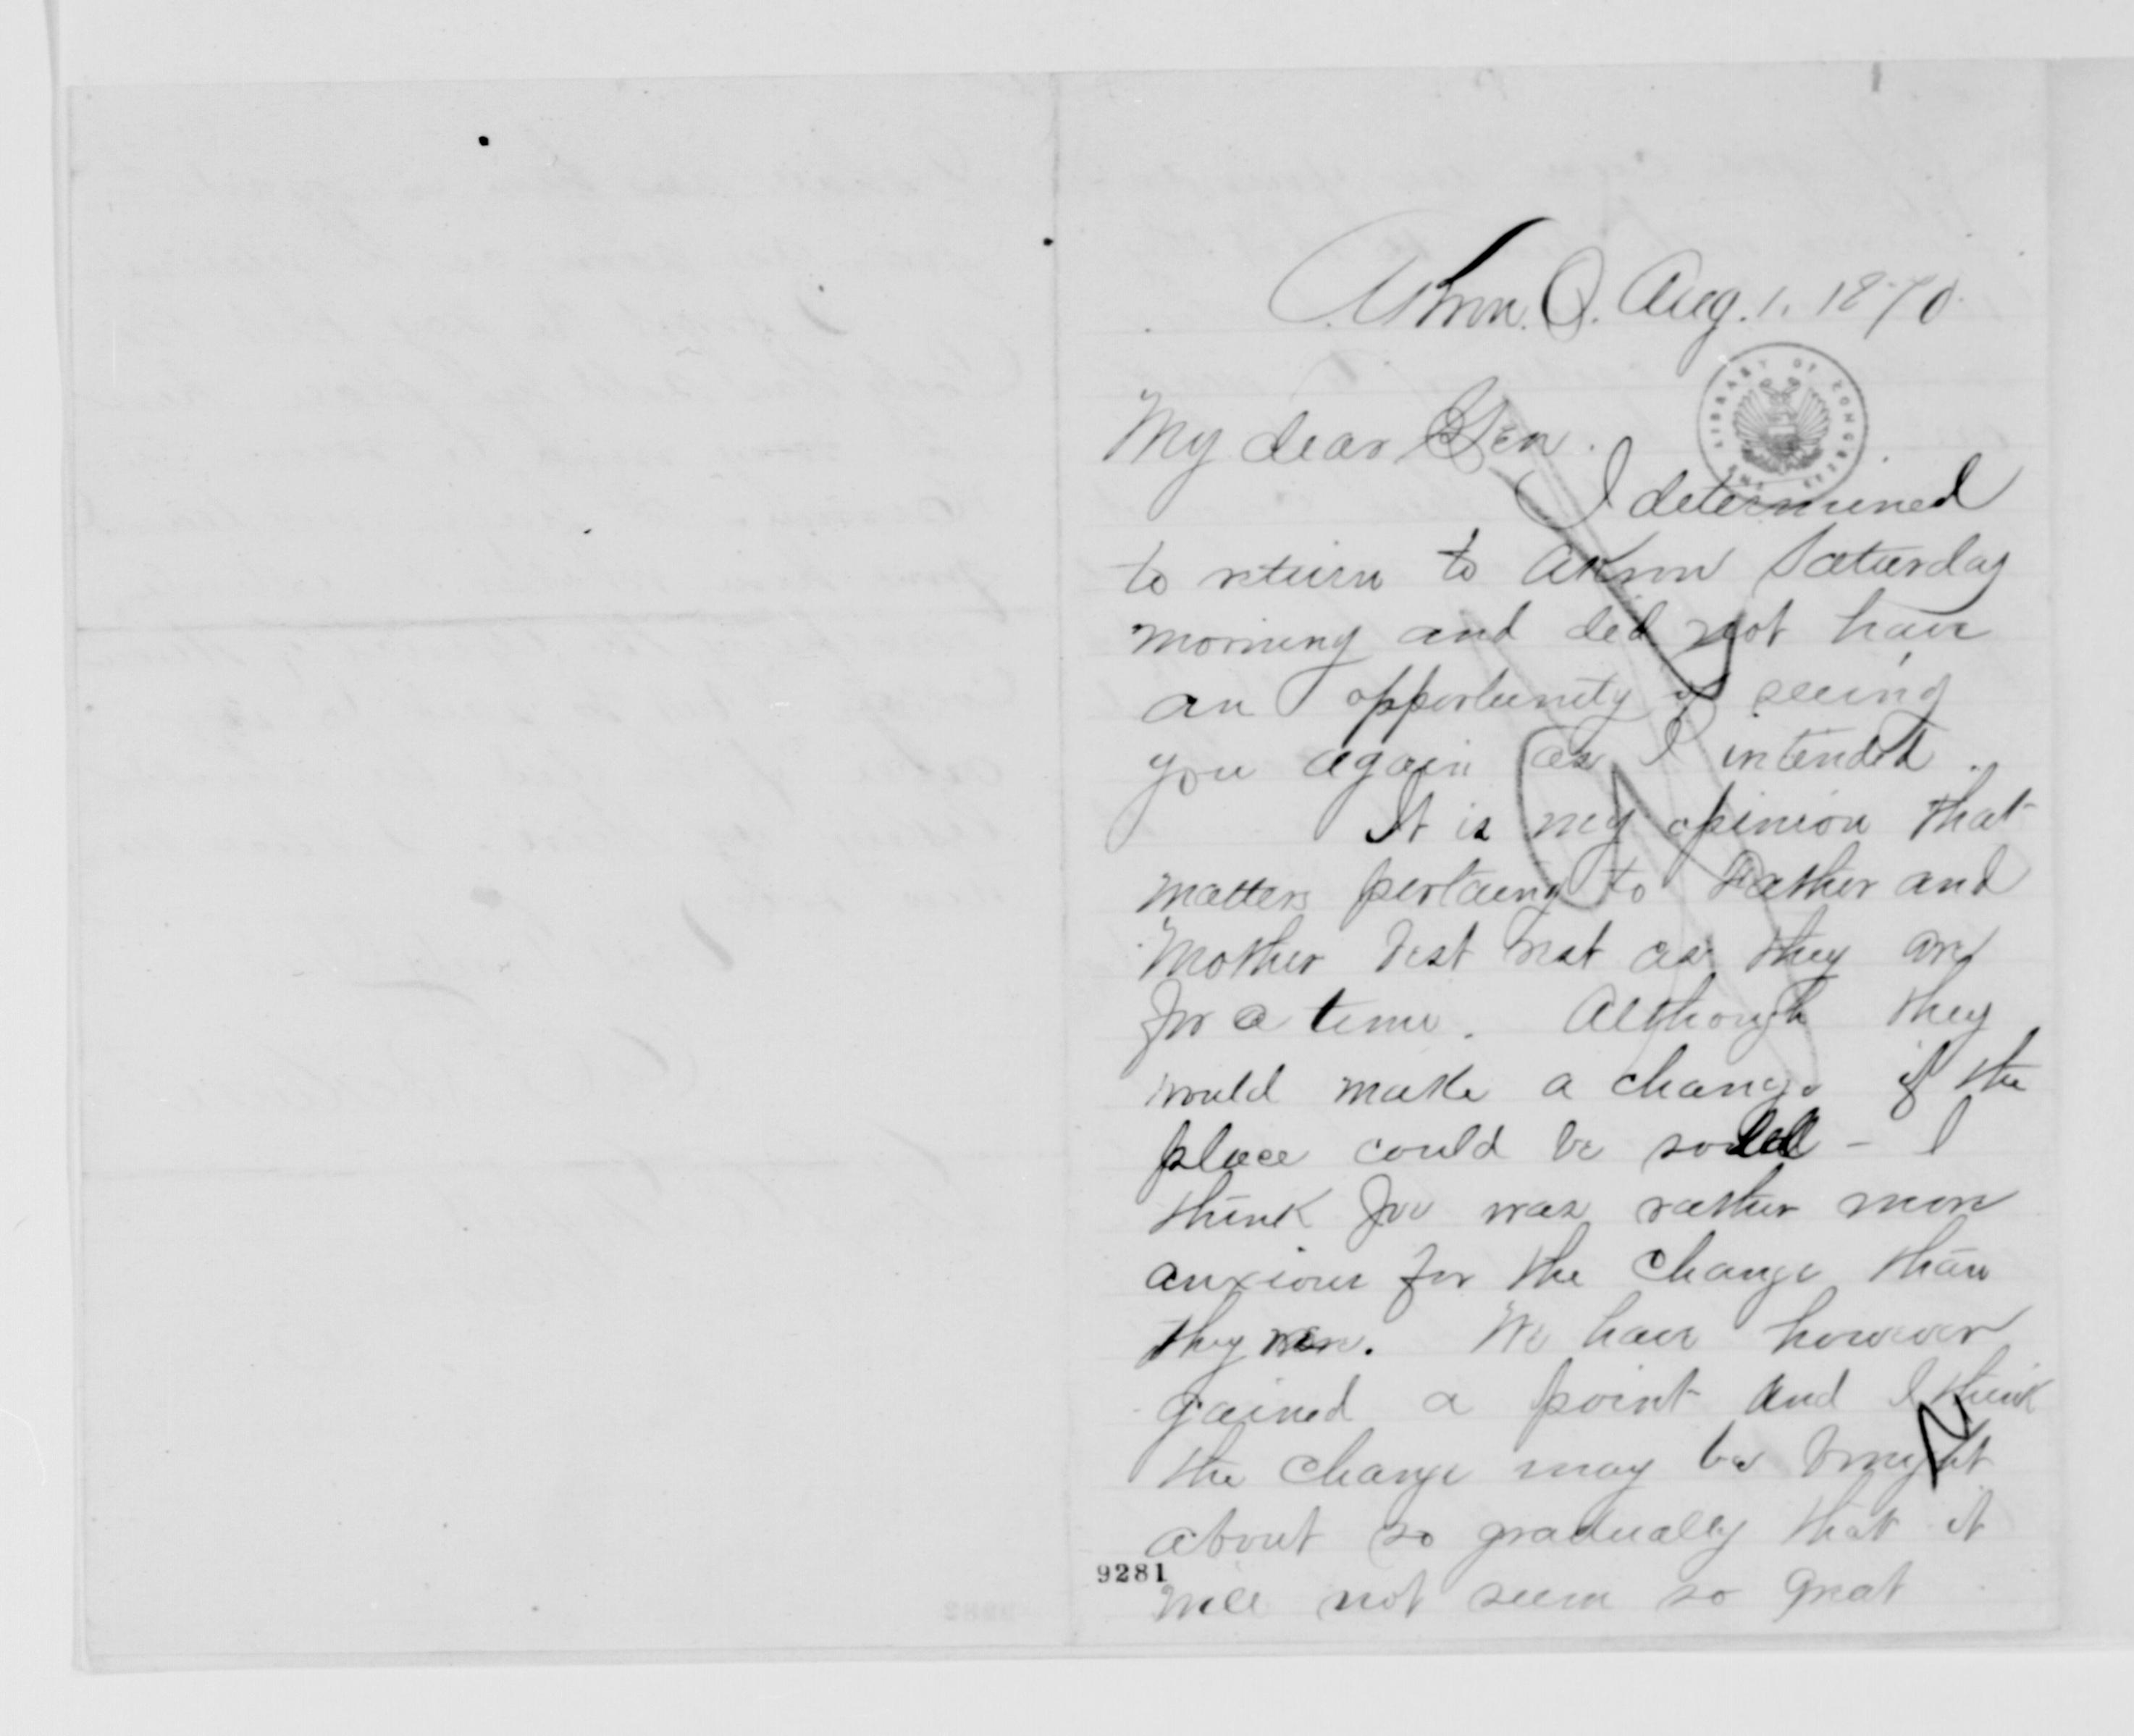 Akron. O. Aug. 1. 1870
LIBRARY OF CONGRESS
My dear Gen.
I determined
to return to Akron Saturday
morning and did not have
an opportunity of seeing
you again as I intended.
It is my opinion that
matters pertaing to Father and
Mother best rest as they are
for a time. Although they
would make a change if the
place could be sold - I
think Joe was rather more
anxious for the change than
they were. We have however
gained a point and I think
the change may be brought
about so gradually that it
9281
will not seem so great